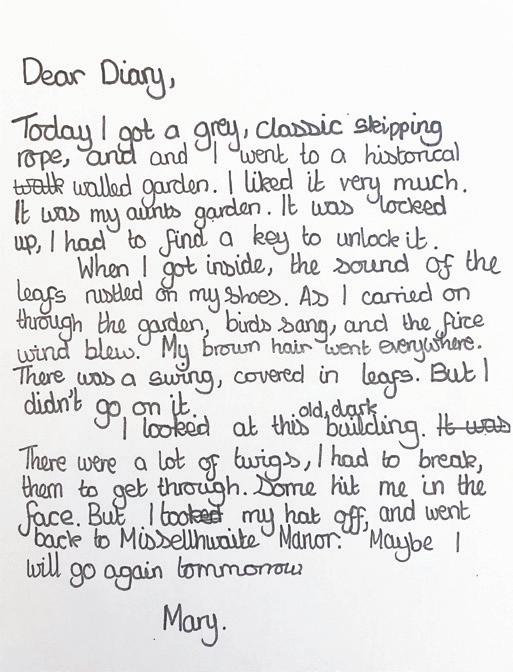 Dear Diary,
Today I got a grey, classic skipping
rope, and and I went to a historical
walk walled garden. I liked it very much.
It was my aunts garden. It was locked
up, I had to find a key to unlock it.
When I got inside, the sound of the
leafs rustled on my shoes. As I carried on
through the garden, birds sang, and the firce
wind blew. My brown hair went everywhere.
There was a swing, covered in leafs. But I
didn't go on it.
I looked at this old, dark building. It was
There were a lot of twigs, I had to break,
them to get through. Some hit me in the
face. But I tooked my hat off, and went
back to Missellhwaite Manor. Maybe I
will go again tommorrow
Mary.